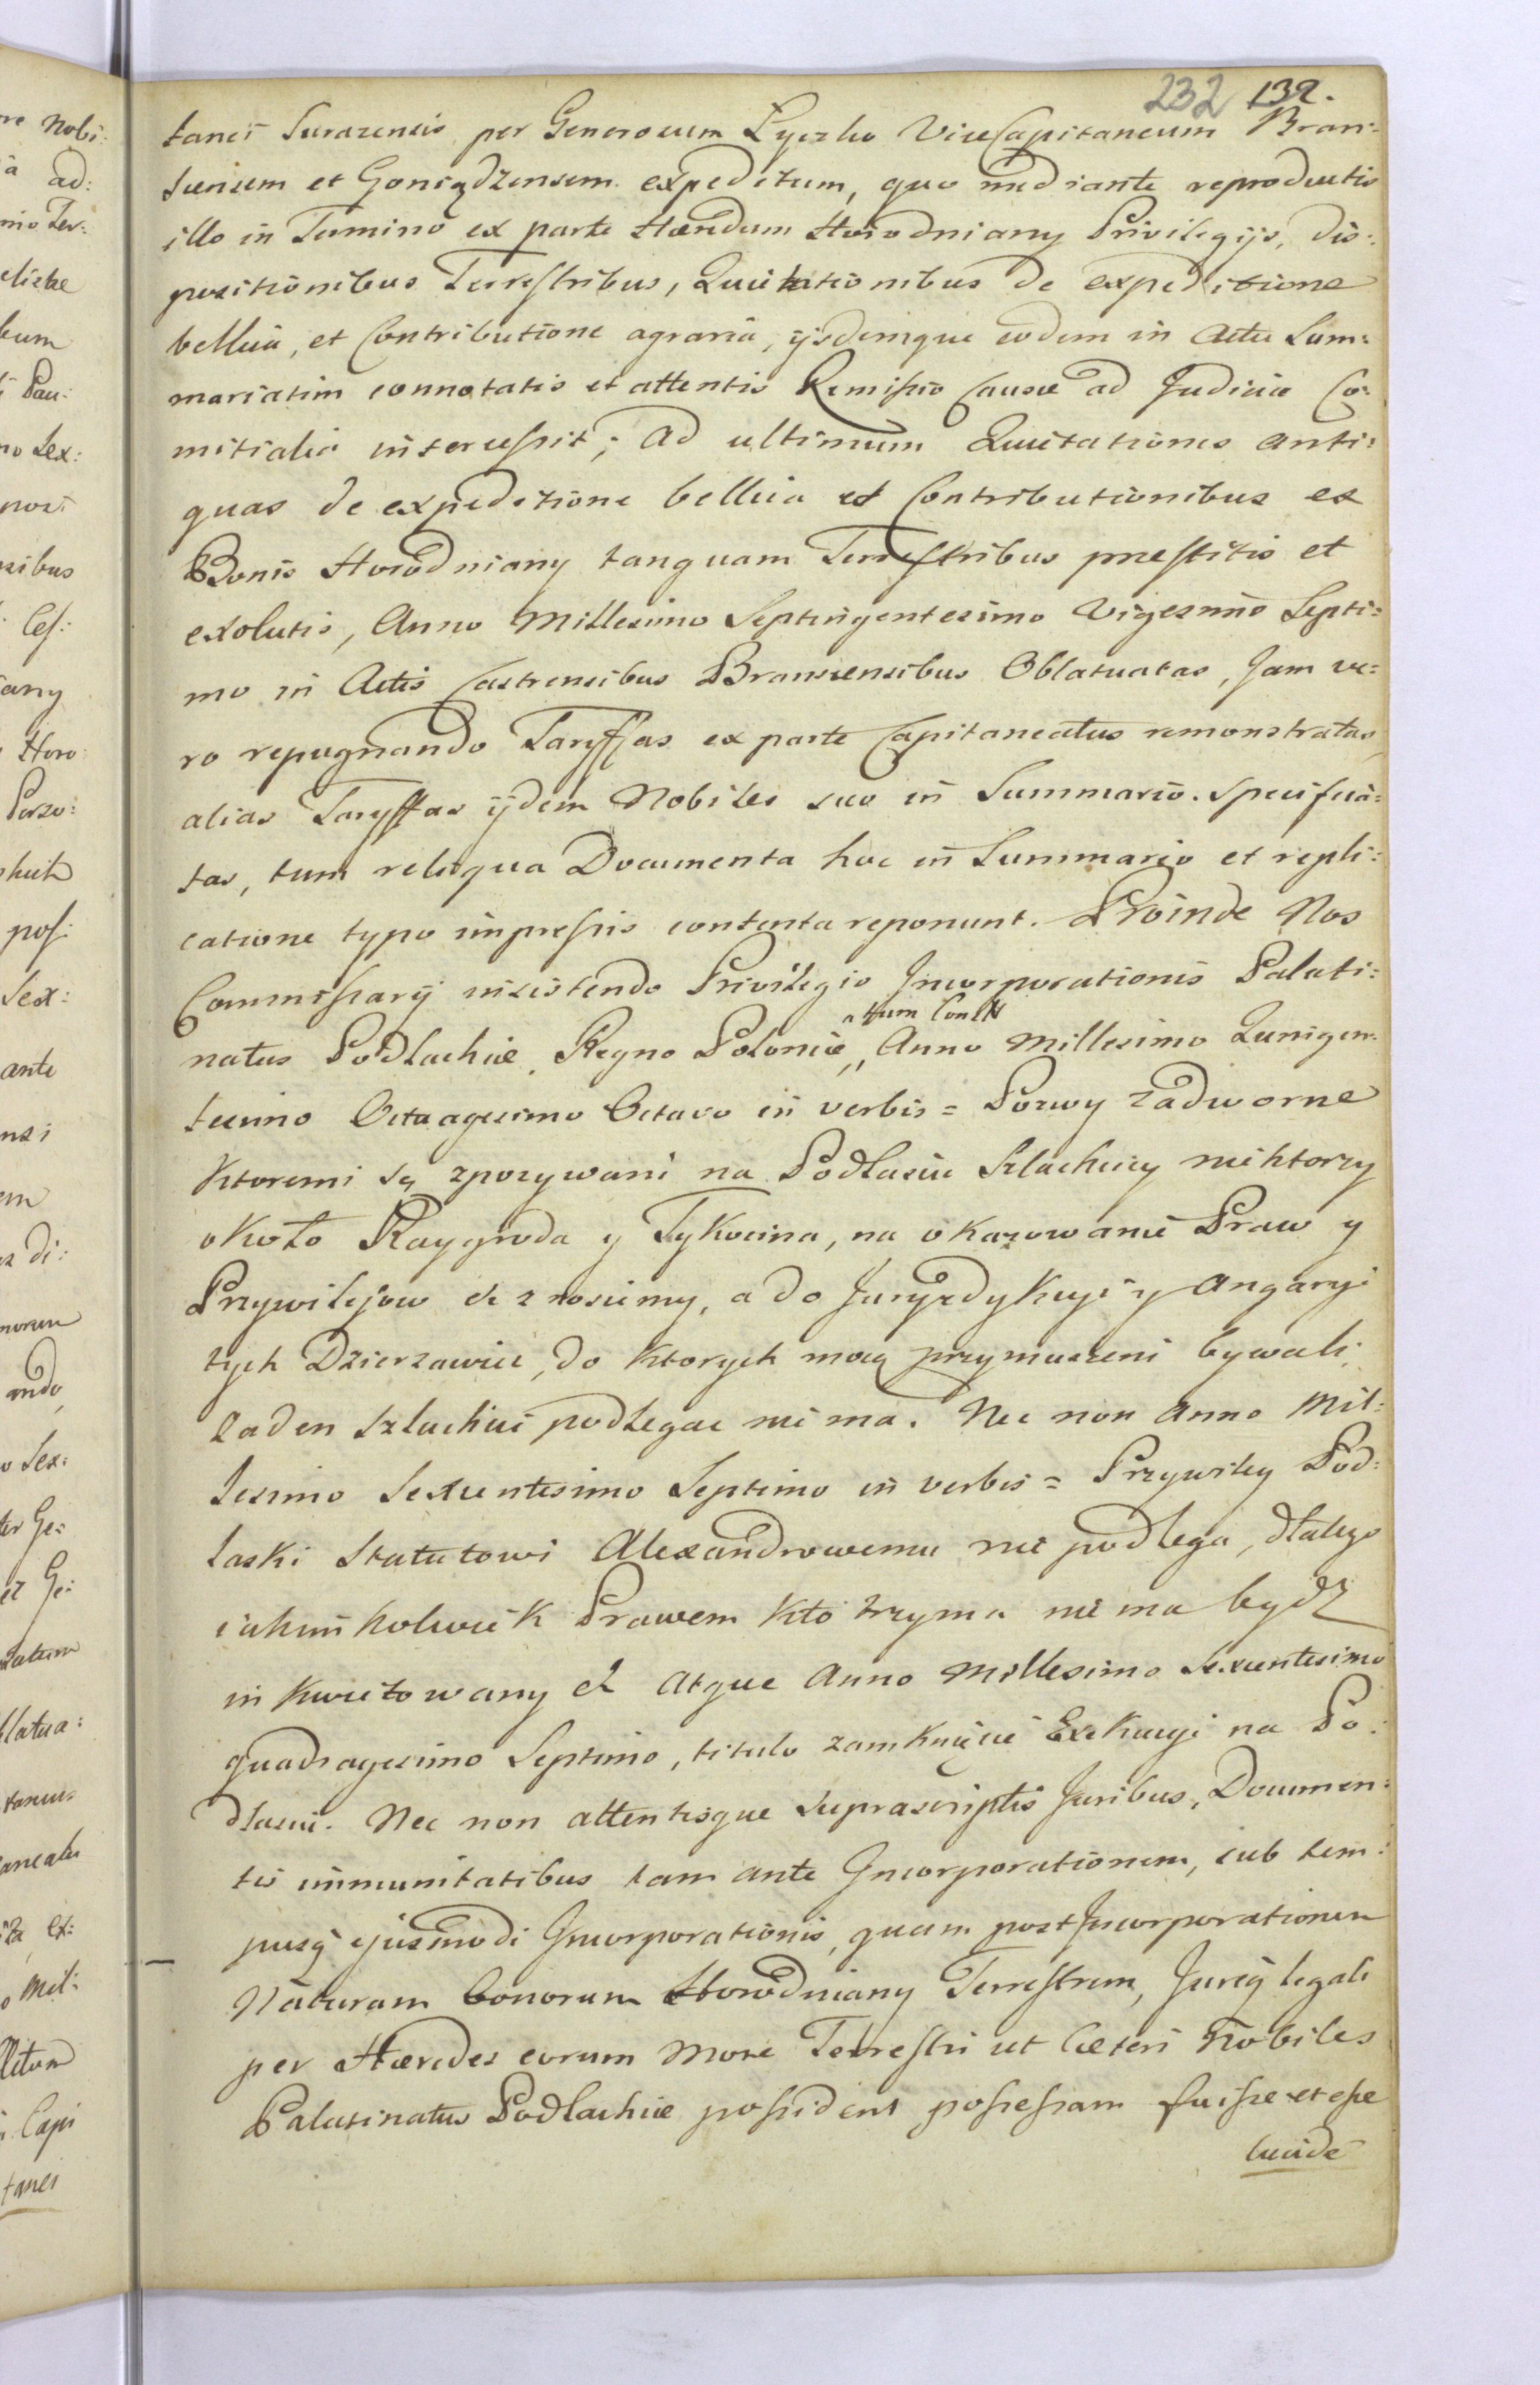 232 132.
tanei Surazensis per Generosum Łyczko ViceCapitaneum Bran:
scensem et Goniądzensem expeditum, quo mediante reproductis
illo in Termino ex parte Hæredum Horodniany Privilegijs, dis:
positionibus Terrestribus, Quietationibus de expeditione
bellica, et Contributione agraria, ijsdemque eodem in Actu Sum:
mariatim connotatis et attentis Remissio Causæ ad Judicia Co:
mitialia intercessit; ad ultimum Quietationes anti:
quas de expeditione bellica et Contributionibus ex
Bonis Horodniany tanquam Terrestribus præstitis et
exolutis, Anno Millesimo Septingentesimo Vigesimo Septi:
mo in Actis Castrensibus Branscensibus Oblatuatas, Jam ve:
ro repugnando Taryffas ex parte Capitaneatus remonstratas,
alias Taryffas ijdem Nobiles suo in Summario specifica:
tas, tum reliqua Documenta hoc in Summario et repli:
catione typo impressis contenta reponunt. Proinde Nos
Commissarij insistendo Privilegio Incorporationis Palati:
natus Podlachiæ Regno Poloniæ, Anno Millesimo Quingen:
tesimo Octuagesimo Octavo in verbis = Pozwy zadworne
ktoremi są zpozywani na Podlasiu Szlachcicy niektorzy
około Raygroda y Tykocina, na okazowanie Praw y
Przywilejow etc znosiemy, a do Juryzdykcyi y Angaryi
tych Dzierzawiec, do ktorych mocą przymuszeni bywali
zaden Szlachcic podlegac nie ma. Nec non Anno Mil:
lesimo Sexcentesimo Septimo in verbis = Przywiley Pod:
laski Statutowi Alexandrowemu nie podlega, dlatego
iakimkolwiek Prawem kto trzyma nie ma bydz
inkwietowany etc Atque Anno Millesimo Sexcentesimo
quadragesimo Septimo, titulo zamknięcie Exekucyi na Po:
dlasiu. Nec non attentisque suprascriptis Juribus, Documen:
tis immunitatibus tam ante Incorporationem, sub tem:
pusq ejusmodi Incorporationis, quam post Incorporationem
Naturam bonorum Horodniany Terrestrem, Jureq legali
per Hæredes eorum More Terrestri ut Cæteri Nobiles
Palatinatus Podlachiæ possident possessam fuisse et esse
lucide